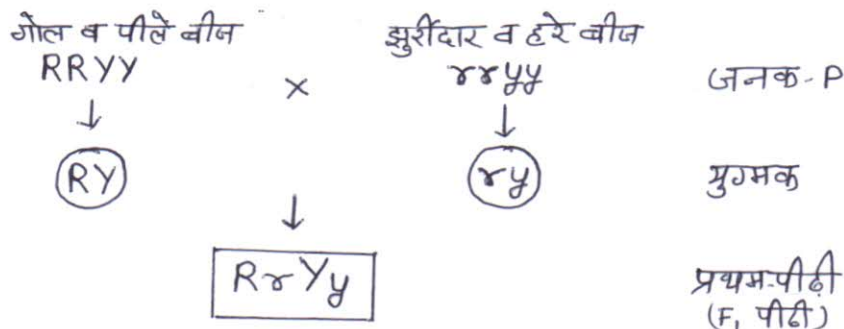 गोल व पीले बीज झुर्रीदार व हरे बीज
RRYY × rryy जनक-P
↓ ↓
RY ry युग्मक
↓
RrYy प्रथम-पीढ़ी
(F₁ पीढी)